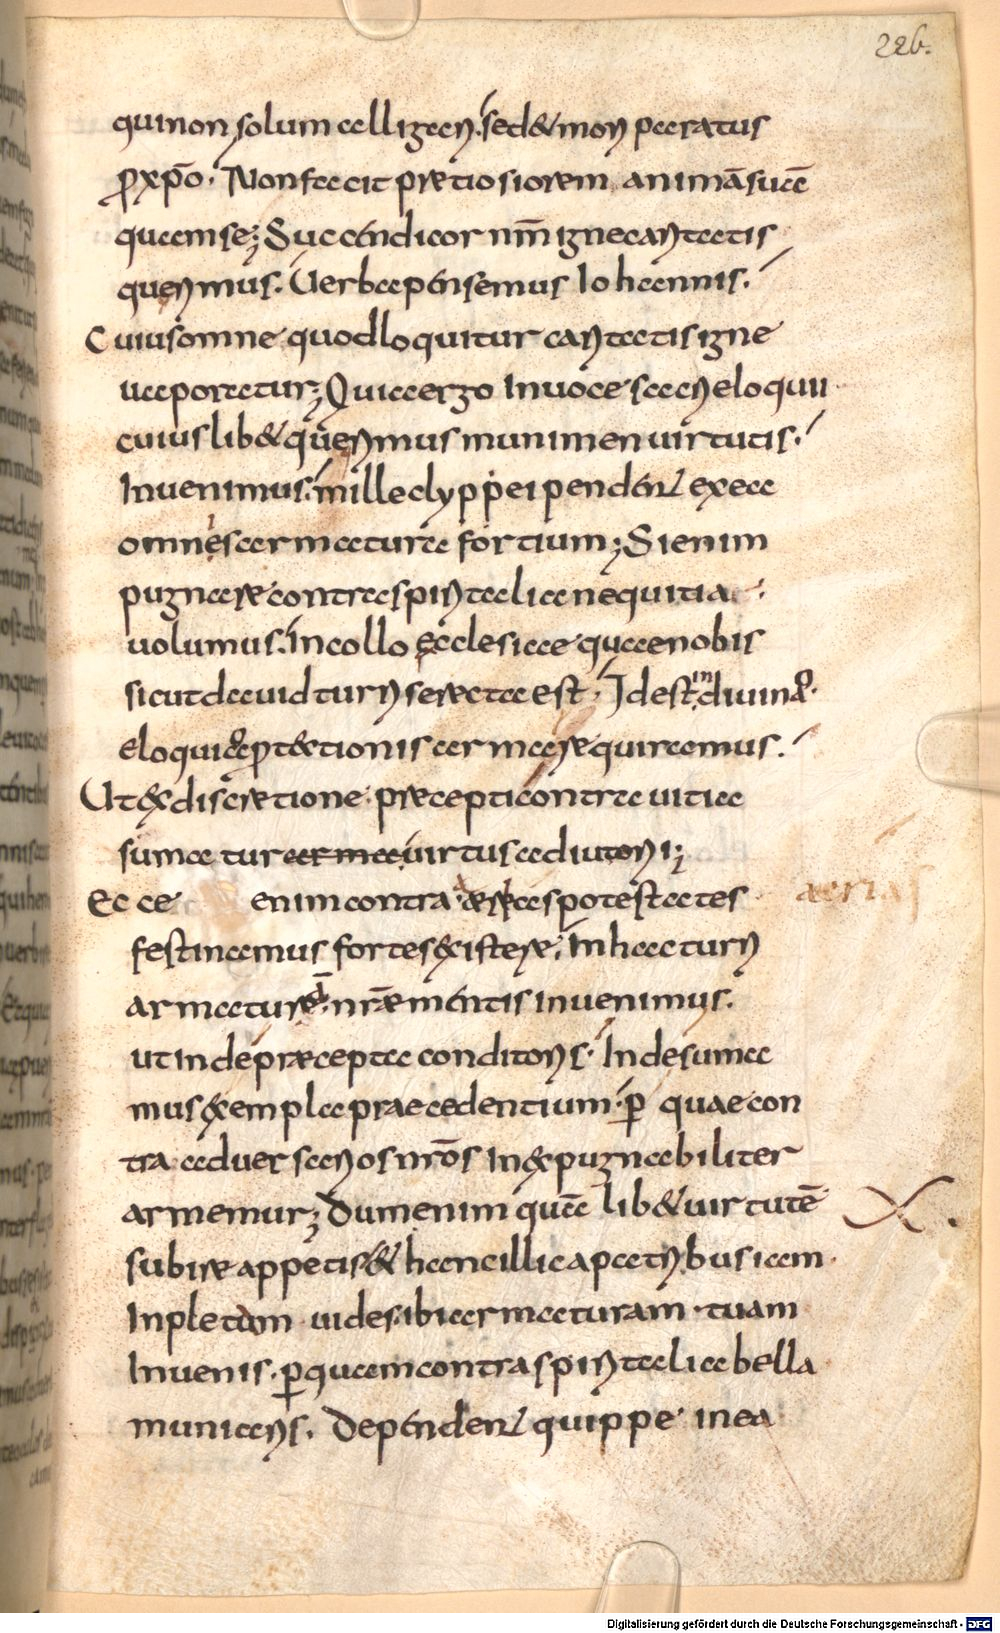 226.
qui non solum alligari. sed & mori paratus
p xpo. Non facit praetiosiorem animā suā
quam se; Succendi cor nrm igne caritatis
querimus. Verba pensemus Iohannis.
Cuius omne quod loquitur caritatis igne
uaporatur; Quia ergo In uoce sacri eloquii
cuius lib& querimus munimen uirtutis.
Inuenimus. mille clyppei pendent ex ea
omnes armatura fortium; Si enim
pugnare contra spiritalia nequitiae.
uolumus. In collo ecclesiae quae nobis
sicut dauid turris erecta est. Idest in diuinis
eloquiis pt&tionis arma requiramus.
Ut & discretione praecepti contra uitia
sumatur arma uirtus adiutorii;
Ecce enim contra aereas potestates
festinamus fortes existere. In hac turri
armaturā nrae mentis inuenimus.
ut inde praecepta conditoris. Inde suma
mus exempla praecedentium. p quae con
tra aduersarios nros Inexpugnabiliter
armemur; Dum enim quā lib& uirtutē
subire appetis & hanc illic a patribus iam
Inpletam uides. ibi armaturam tuam
Inuenis. p quam contra spiritalia bella
muniaris. Dependent quippe in ea
aerias
X.
Digitalisierung gefördert durch die Deutsche Forschungsgemeinschaft - DFG